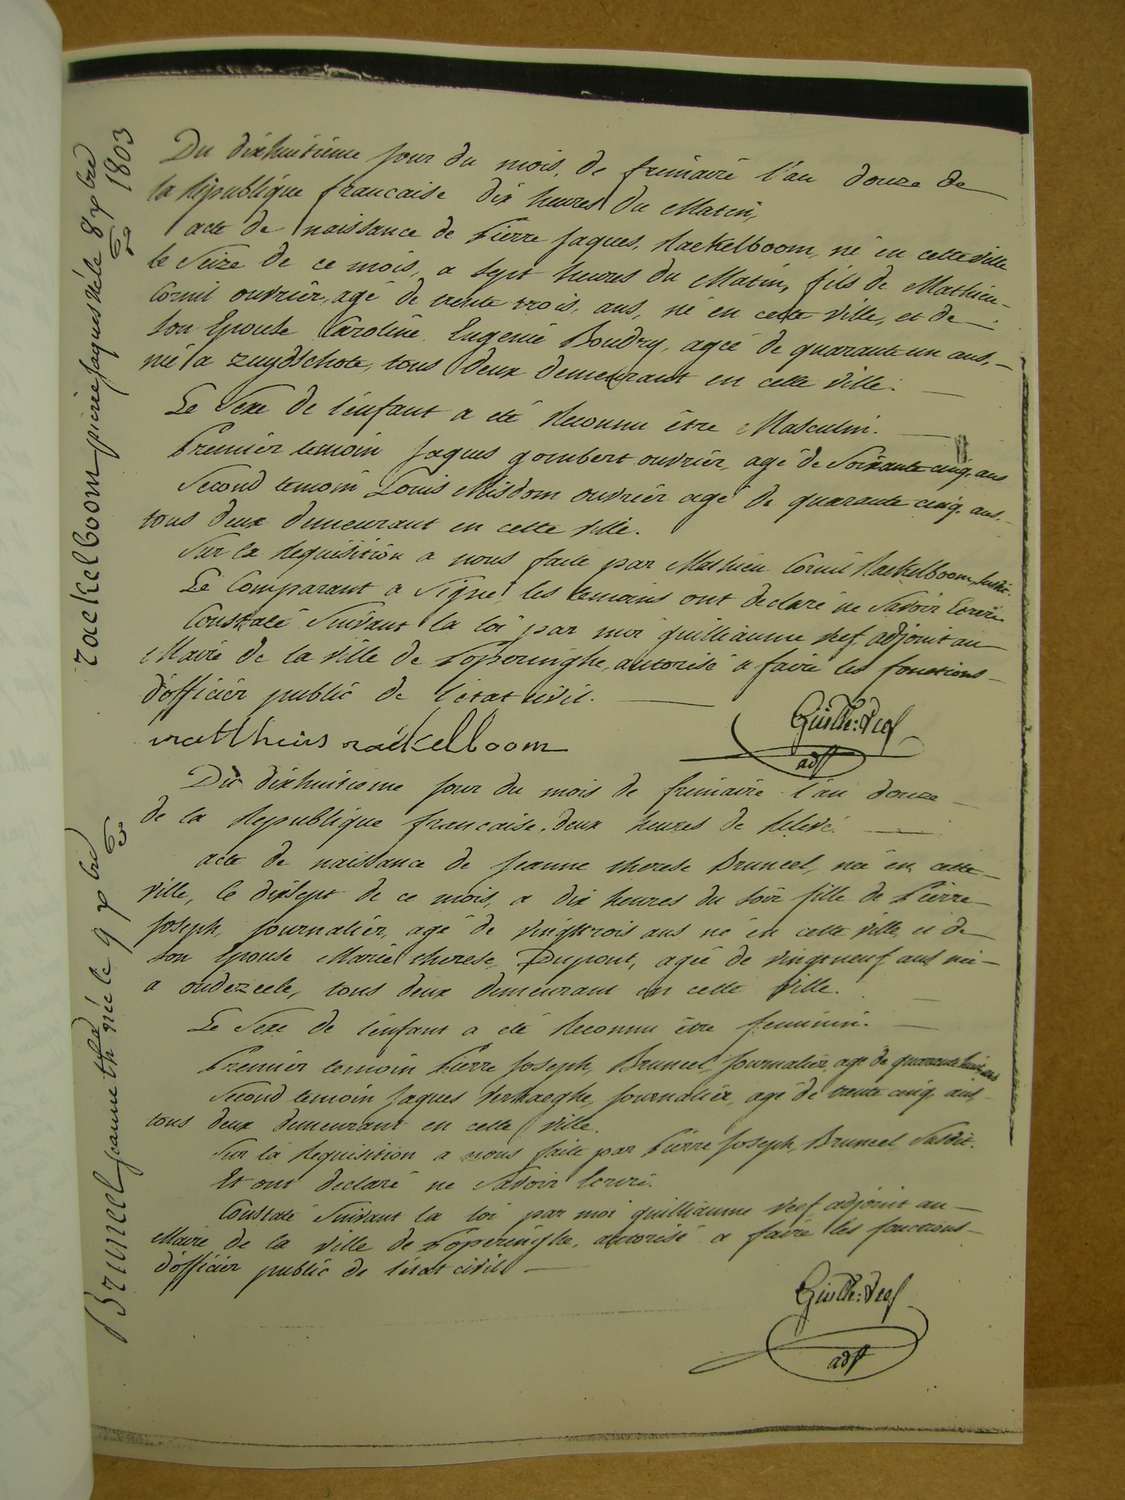 raekelboom pierre jaques né le 8 xbre 1803
Du dixhuitieme jour du mois de frimaire l'an douze de
la République francaise dix heures du Matin,
acte de naissance de Pierre jaques Raekelboom, né en cette ville
le Seize de ce mois, a sept heures du Matin, fils de Mathieu
Cornil ouvrier, agé de trente trois ans, né en cette ville, et de
son Epouse Caroline Eugenie Boudry, agée de quarante un ans,
né a zuydschote, tous deux demeurant en cette ville.
Le Sexe de l'enfant a eté Reconnu être Masculin.
Premier temoin jaques gombert ouvrier, agé de Soixante cinq ans
Second temoin Louis Misdom ouvrier agé de quarante cinq ans,
tous deux demeurant en cette ville.
Sur la Requisition a nous faite par Mathieu Cornil Raekelboom, Susdit.
Le Comparant a Signé, les temoins ont declaré ne Savoir Ecrire.
Constaté Suivant la loi par moi guilliaume Reef adjoint au
Maire de la ville de Poperinghe, autorisé a faire les fonctions
d'officier public de l'etat civil.
mattheus raekelboom
Guille: Reef
adjt
Bruneel jeanne thre née le 9 xbre
Du dixhuitieme jour du mois de frimaire l'an douze
de la Republique francaise, deux heures de Relevé.
acte de naissance de jeanne therese Bruneel, née en cette
ville, le dixsept de ce mois, a dix heures du soir fille de Pierre
joseph, journalier, agé de vingt trois ans né en cette ville, et de
son Epouse Marie therese Dupont, agée de vingt neuf ans née
a oudezeele, tous deux demeurant en cette ville.
Le Sexe de l'enfant a eté Reconnu être feminin.
Premier temoin Pierre joseph, Bruneel, journalier, agé de quarante huit ans
Second temoin jaques Verhaeghe, journalier, agé de trente cinq ans,
tous deux demeurant en cette ville.
Sur la Requisition a nous faite par Pierre joseph, Bruneel, Susdit.
Et ont declaré ne Savoir Ecrire.
Constaté Suivant la loi par moi guilliaume Reef adjoint au
Maire de la ville de Poperinghe, autorisé a faire les fonctions
d'officier public de l'etat civil
Guille: Reef
adjt